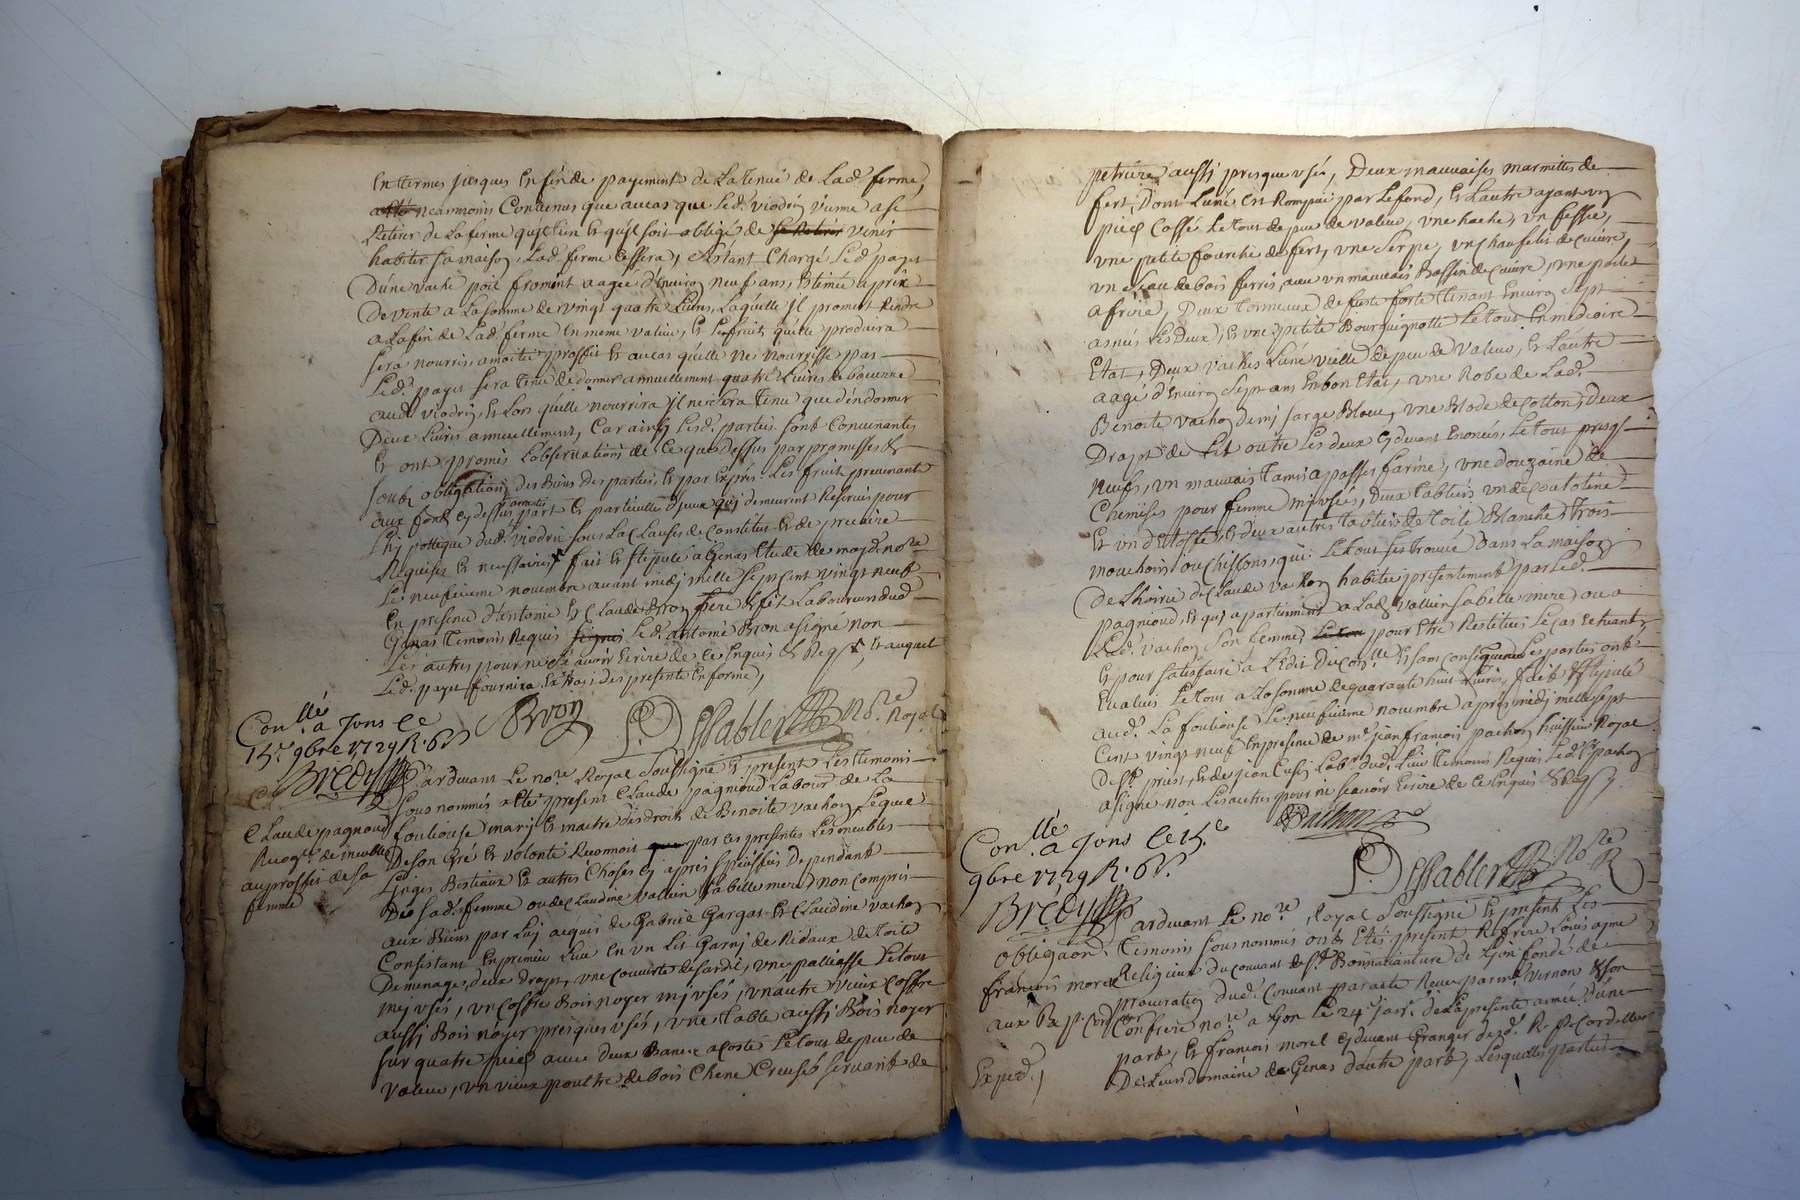 En termes jusques En fin de payement de La tenue de Lad. ferme,
neanmoins Convenus que au cas que Led. viodrin vienne a se
Retirer de La ferme quil tien et quil soit obligé de se Retirer venir
habiter sa maison, Lad. ferme Cessera, S'Estant Chargé Led. payet
D'une vache poil froment aagée d'Environ neuf ans, Estimée a prix
De vente a La somme de vingt quatre Livres, Laquelle jl promet Rendre
a La fin de Lad. ferme En meme valeur, et Le fruit quelle produira
sera nourris a moitié proffit et au cas quelle ne nourrisse pas
Led. payet sera tenu de donner annuellement quatre Livres de beurre
aud. viodrin, et Lors quelle nourrira jl ne sera tenu que d'en donner
Deux Livres annuellement, Car ainsy Lesd. parties sont Convenantes
Et ont promis L'observation de Ce que Dessus par promesses et
sous obligation des Biens des parties et par Exprés Les fruits provenants
aux fonds cy dessus part et particulle d'jceux qui demeurent Reservés pour
Lhipotteque dud. viodrin sous La Clause de Constitut et de precaire
Requises et necessaires fait et stipulé a Genas Etude de moyd. no.re
Le neufvieme novembre avant midj mille sept cent vingt neuf
En presence d'antoine et Claude Bron pere et fils Laboureurs dud.
Genas temoins Requis signés Led. antoine Bron a signé non
Les autres pour ne sçavoir Ecrire de Ce Enquis et Reqs, et auquel
Led. payet fournira Extrait des presente En forme,
Bron Dessablet No.re Royal
Con.llé a Jons Le
15.e 9bre 1729 R. 6 s
Bredy
Pardevant Le no.re Royal Soussigné et present Les temoins
sous nommés a Eté present Claude pagnoud Labour.r de La
foulliouse mary et maitre des droits de Benoite vachon Lequel
De son Gré et volonté Reconnoit par Ces presentes Les meubles
Linges Bestiaux et autres Choses cy aprés speciffiés dependants
De sad. femme ou de Claudine vallein sa belle mere, non compris
aux Biens par Luy acquis de Gabriel Gargat et Claudine vachon
Consistant En premier Lieu En un Lit Garny de Ridaux de toile
De menage, deux draps, une Couverte de sardit, une palliasse Le tout
mj usés, un coffre Bois noyer mj usés, un autre vieux coffre
aussi Bois noyer presques usés, une table aussi Bois noyer
sur quatre pieds avec deux Bancs a coste Le tout de peu de
valeur, un vieux poultre de bois Chene Creusé servant de
Claude pagnoud
Recog.ce de meuble
au proffit de sa
femme
petriere aussi presque usée, Deux mauvaises marmittes de
fert, Dont L'une Est Rompue par Le fond, et L'autre ayant un
pied Cassé Le tout de peu de valeur, une hache, un fessou,
une petite fourche de fert, une Serpe, un Chaufelit de Cuivre,
un seau de bois ferrés, avec un mauvais Bassin de Cuivre, une poele
a frire, Deux tonneaux de fuste forte tenant Environ sept
asnés Les Deux, et une petite Bourguignotte Le tout En mediocre
Etat, Deux vaches L'une vielle de peu de valeur, et L'autre
aagé d'Environ sept ans En bon Etat, une Robe de Lad.
Benoite vachon Demj sarge Bleue, une Mode de Cotton, Deux
Draps de Lit outre Les deux cy devant Enoncés, Le tout presq.
neufs, un mauvais tamis a passer farine, une douzaine de
Chemises pour femme mj usées, deux tabliers un de coutoline
Et un d'Etoffe et deux autres tabliers de toile Blanche, trois
mouchoirs ou Chiffons, qui Le tout se trouve Dans La maison
De Lhoirie de Claude vachon habitée presentement par Led.
pagnoud, et quj apartiennent a Lad. vallein sa belle mere, ou a
Lad. vachon son femme, pour Etre Restitués Le Cas Echeant,
Et pour satisfaire a L'Edit du Con.lle et sans Consequence Les parties ont
Evalués Le tout a La somme de quarante huit Livres, fait et stipulé
aud. La foulliouse Le neufvieme novembre aprés midj mille sept
Cent vingt neuf En presence de m.e jean françois pachon huissier Royal
De St. priest et de jean Labr. dud. Lieu temoins Requis Led. pachon
a signé non Les autres pour ne sçavoir Ecrire de Ce Enquis et Reqs
Pachon
Con.llé a Jons Le 15.e
9bre 1729 R. 6 s.
Dessablet No.re R
Bredy
Pardevant Le no.re Royal Soussigné et present Les
temoins sous nommés ont Etés present Refrere Louis
Religieux du couvant de St. Bonnaventure de Lyon fondé de
procuration dud. Couvant par acte Receu par m.e vernon et son
Confrere no.re a Lyon Le 24.e janv.r de La presente année, D'une
part, et françois morel cy devant Granger desd. R. P. Cordelliers
De Leurs domaine de Genas d'autre part, Lesquelles parties
obligaon.
françois morel
aux R. p. Cordelliers
Exped.,